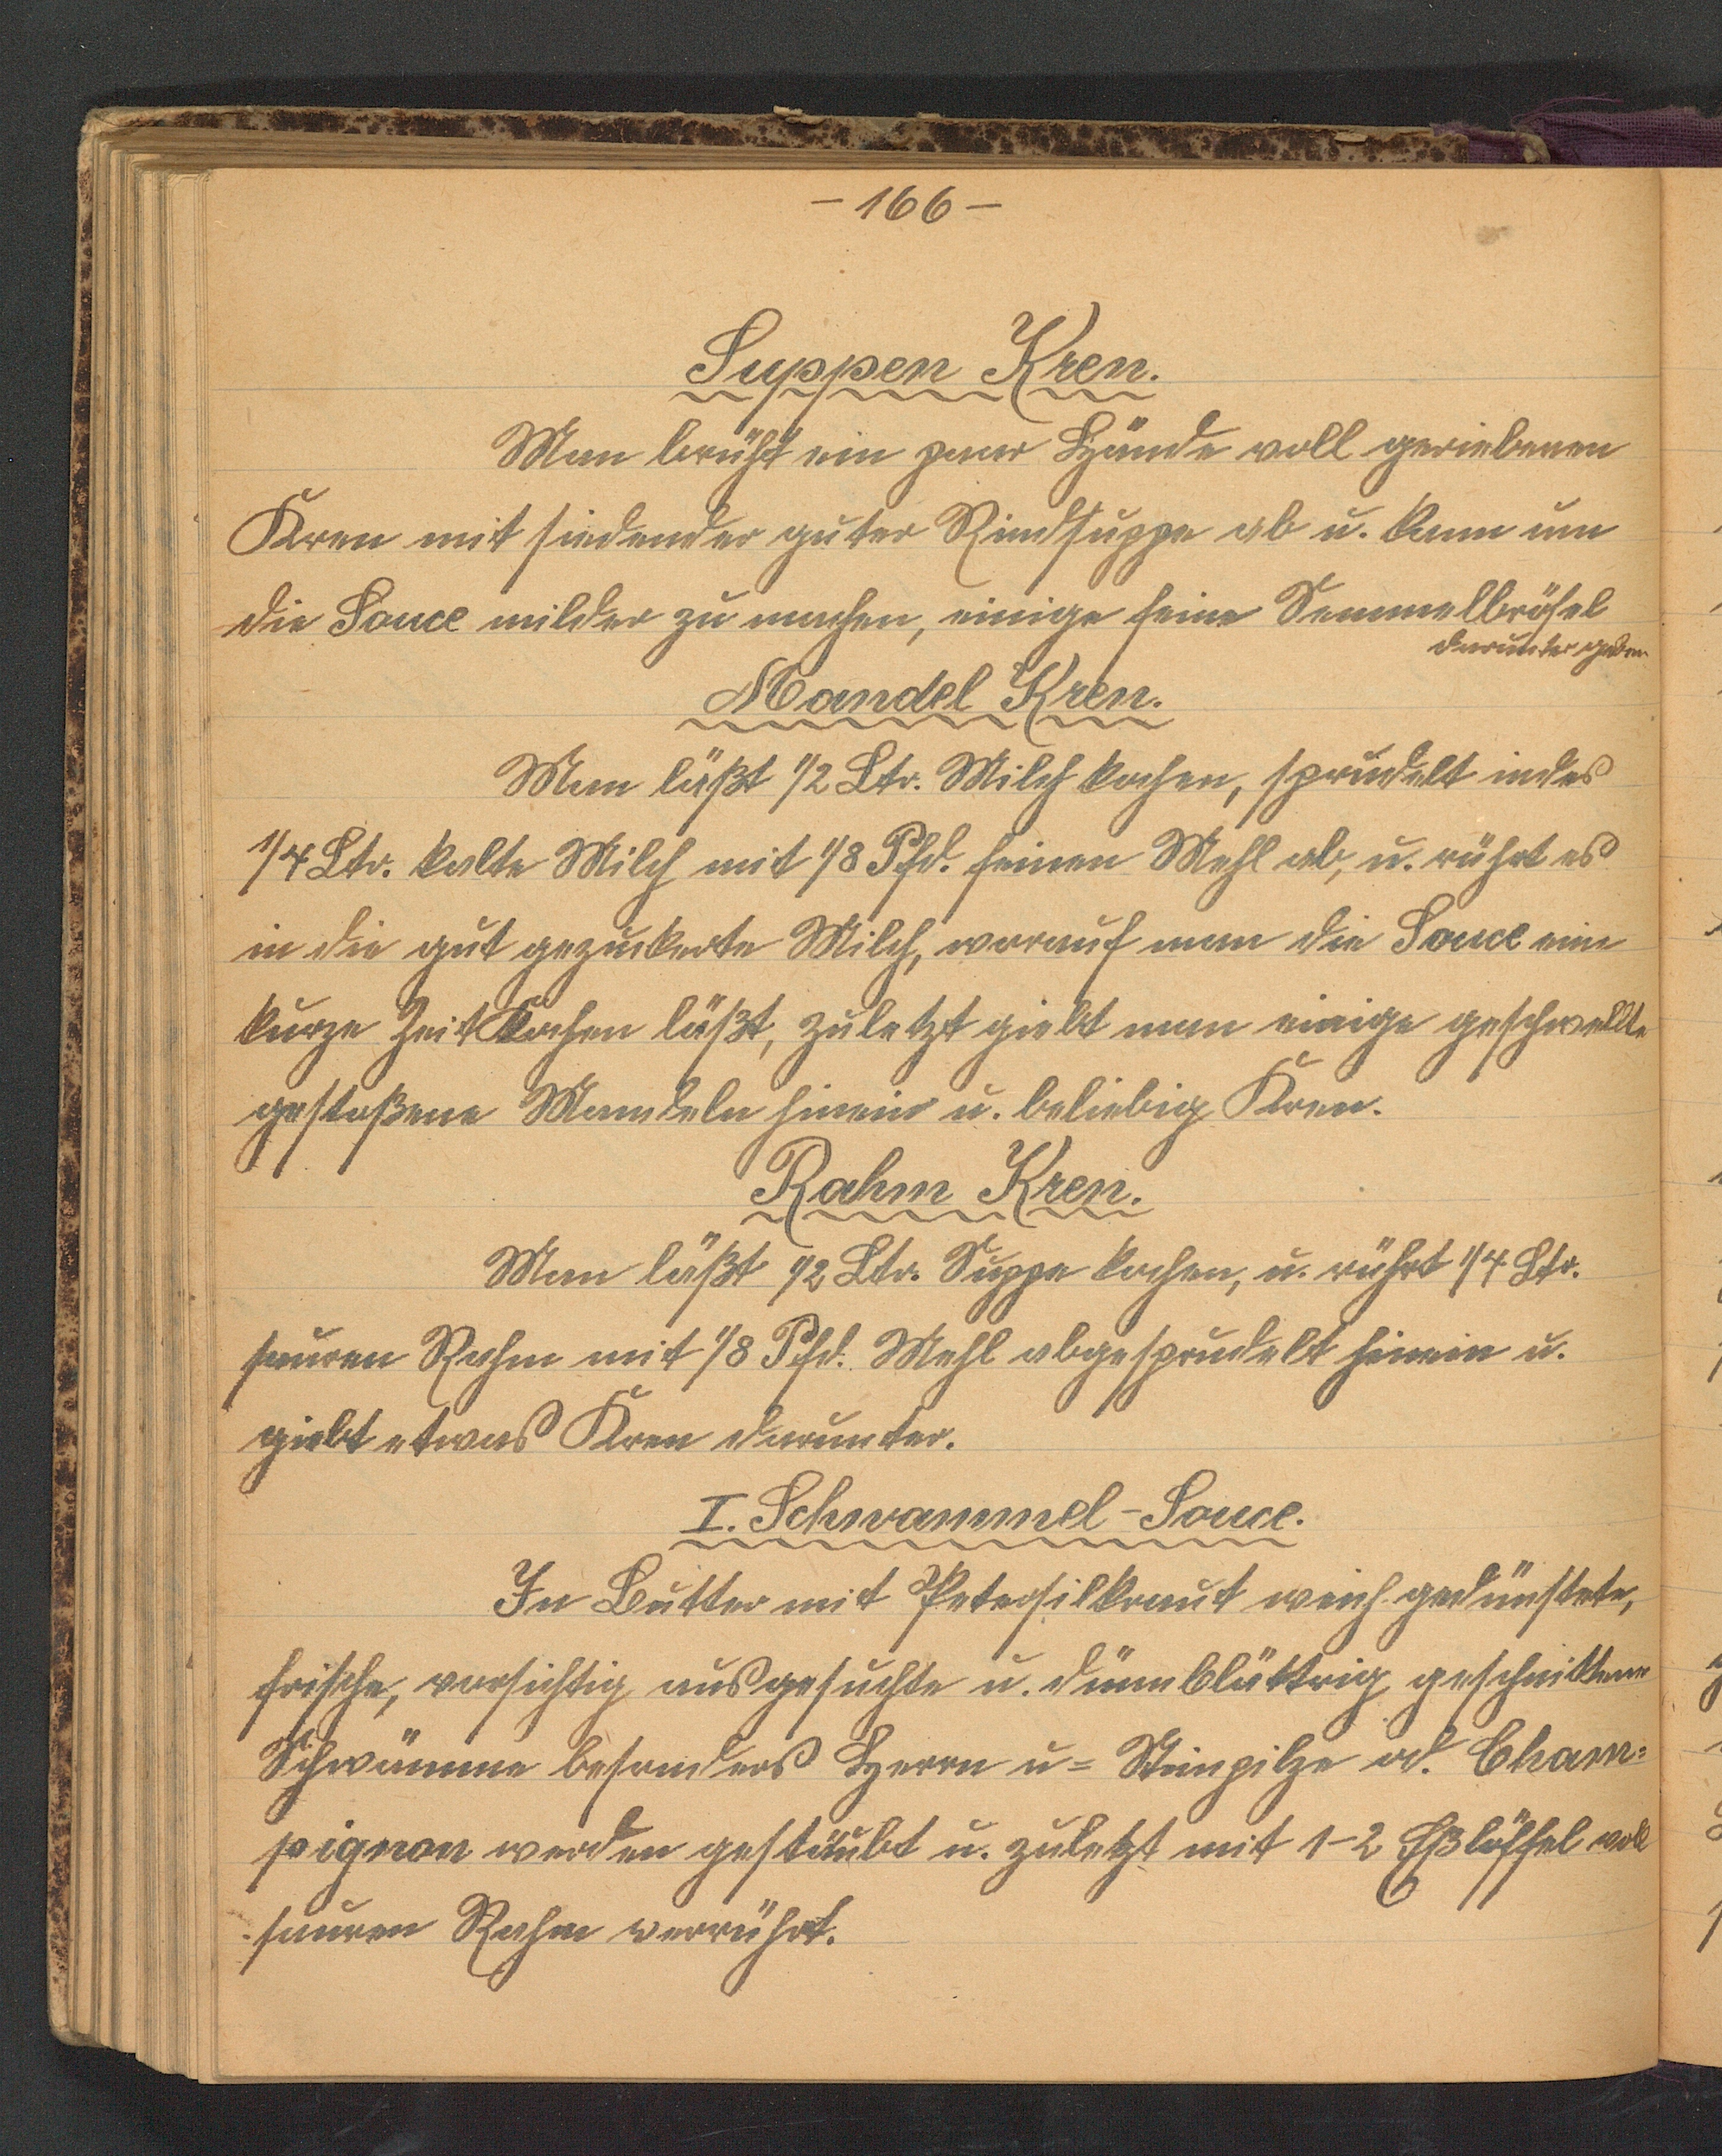 – 166 –
Suppen Kren.
Man brüht ein paar Hände voll geriebenen
Kren mit siedender guter Rindsuppe ab u. kann um
die Sauce milder zu machen, einige feine Semmelbrösel
darunter geben
Mandel Kren.
Man läßt 1/2 Ltr. Milch kochen, sprudelt indes
1/4 Ltr. kalte Milch mit 1/8 Pfd. feinen Mehl ab, u. rührt es
in die gut gezuckerte Milch, worauf man die Sauce eine
kurze Zeit kochen läßt, zuletzt giebt man einige geschwellte
gestoßene Mandeln hinein u. beliebig Kren.
Rahm Kren.
Man läßt 1/2 Ltr. Suppe kochen, u. rührt 1/4 Ltr.
sauren Rahm mit 1/8 Pfd. Mehl abgesprudelt hinein u.
giebt etwas Kren darunter.
I. Schwammel-Sauce.
In Butter mit Petersilkraut weich gedünstete,
frische, vorsichtig ausgesuchte u. dünnblättrig geschnittene
Schwämme besonders Herrn u= Steinpilze od. Cham=
pignon werden gestäubt u. zuletzt mit 1-2 Eßlöffel voll
sauren Rahm verrührt.